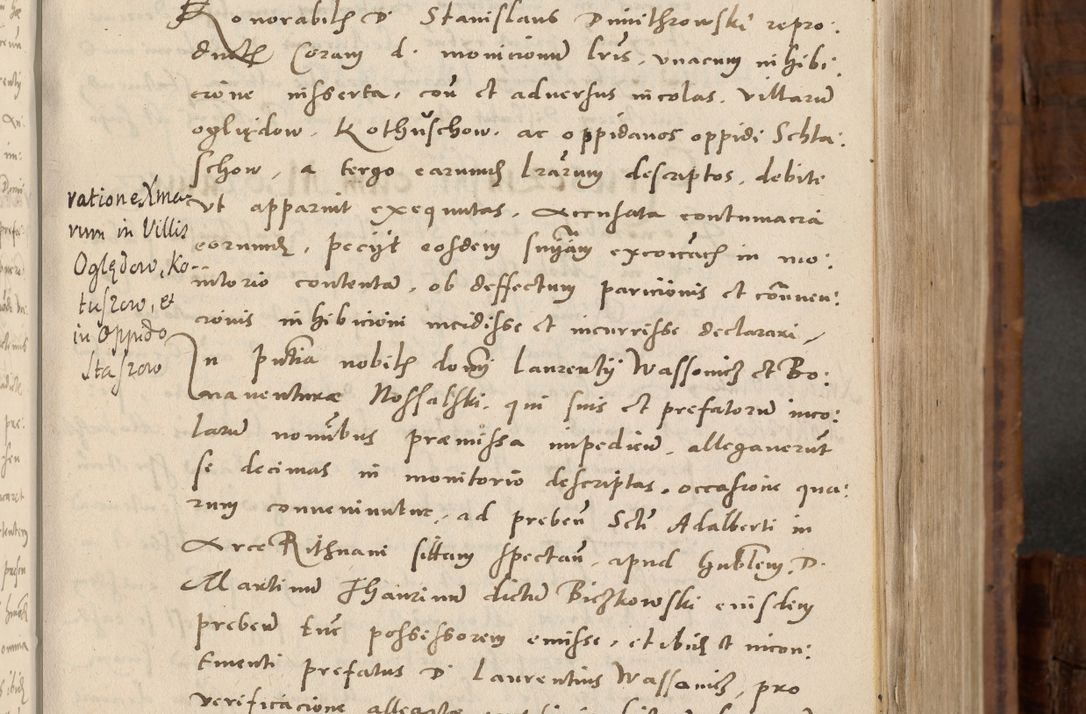 Honorabilis D. Stanislaus Dmithrowski repro:
ducens Coram d. monicionum lris. vnacum inhibi:
cione insserta, con et adversus incolas. villarum
oględow, Kothuschow. ac oppidanos oppidi Schta:
schow, a tergo earumdem lrarum descriptos, debite
vt apparuit exequutas, Accusata contumacia
eorumdem, peciit eosdem sniam excoicacis in mo:
nitorio contentam, ob deffectum paricionis et conven:
cionis inhibicioni incidisse et incurrisse declarari,
In pntia nobilis domini Laurentii Wassowicz et Bo:
naventurae Nossalski. qui suis et prefatorum inco:
larum nominibus praemissa impedien, allegaverunt
se decimas in monitorio descriptas. occasione qua:
rum conveniuntur, ad preben Scti Adalberti in
Arce sittam spectan, apud hublem D.
Martinum dictum Biczkowski eiusdem
preben tunc possessorem emisse, et ibidem et incon:
tinenti prefatus D. Laurentius Wassowicz, pro
verificacione
ratione Xma-
rum in Villis
Oględow, Ko-
tuszow, et
in Oppido
Staszow